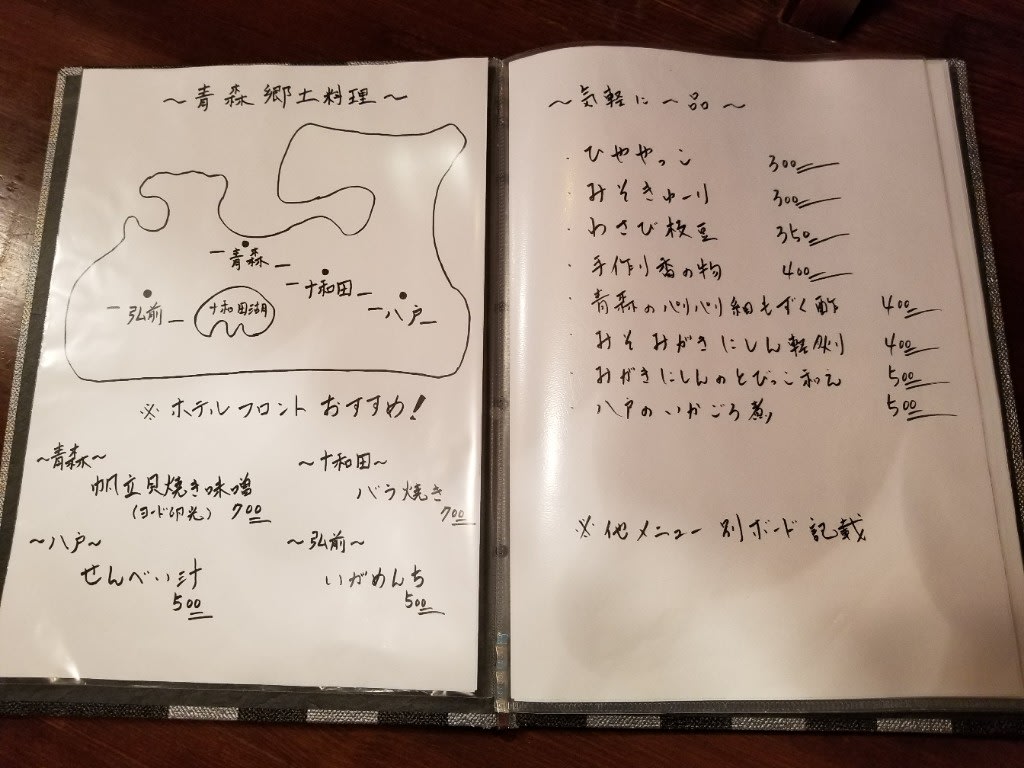 ～青森郷土料理～
青森
十和田
弘前
十和田湖
八戸
※ホテルフロントおすすめ！
～青森～
帆立貝焼き味噌
(ヨード卵光) 700
～十和田～
バラ焼き
700
～八戸～
せんべい汁
500
～弘前～
いがめんち
500
～気軽に一品～
・ひややっこ 300
・みそきゅーり 300
・わさび枝豆 350
・手作り香の物 400
・青森のパリパリ細もずく酢 400
・みそみがきにしん軽炙り 400
・みがきにしんのとびっこ和え 500
・八戸のいかごろ煮 500
※他メニュー別ボード記載